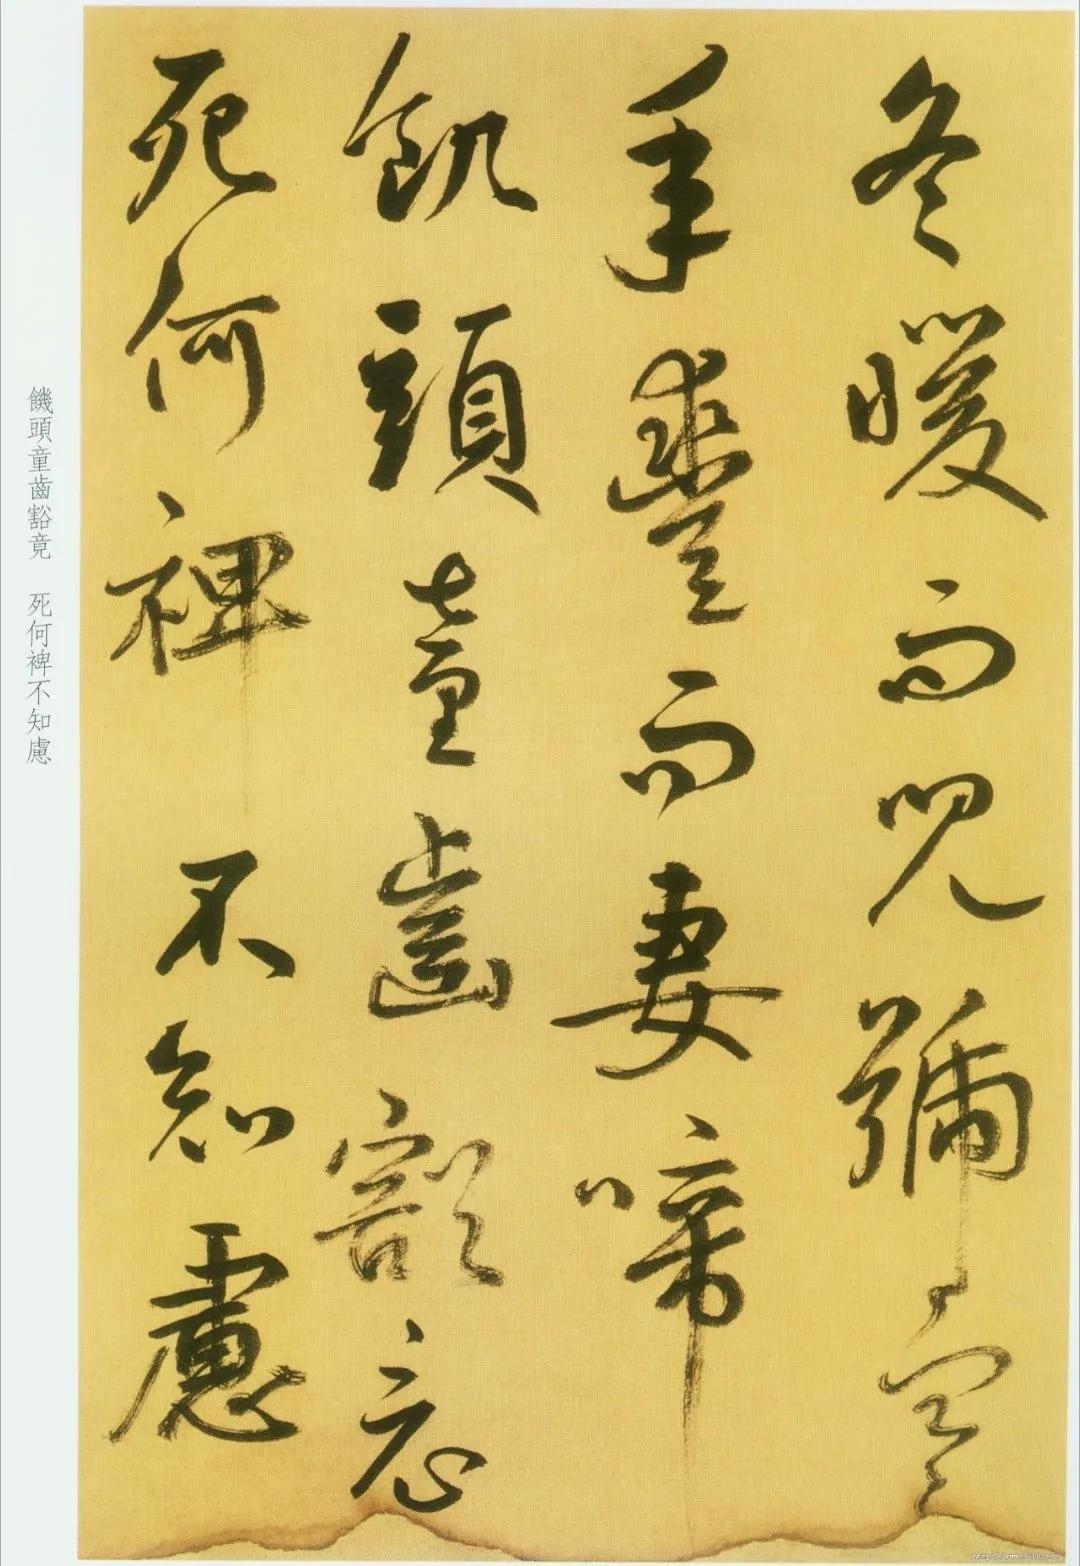 冬暖而兒號寒
年豐而妻啼
飢頭童齒豁竟
死何裨不知慮
饑頭童齒豁竟　死何裨不知慮